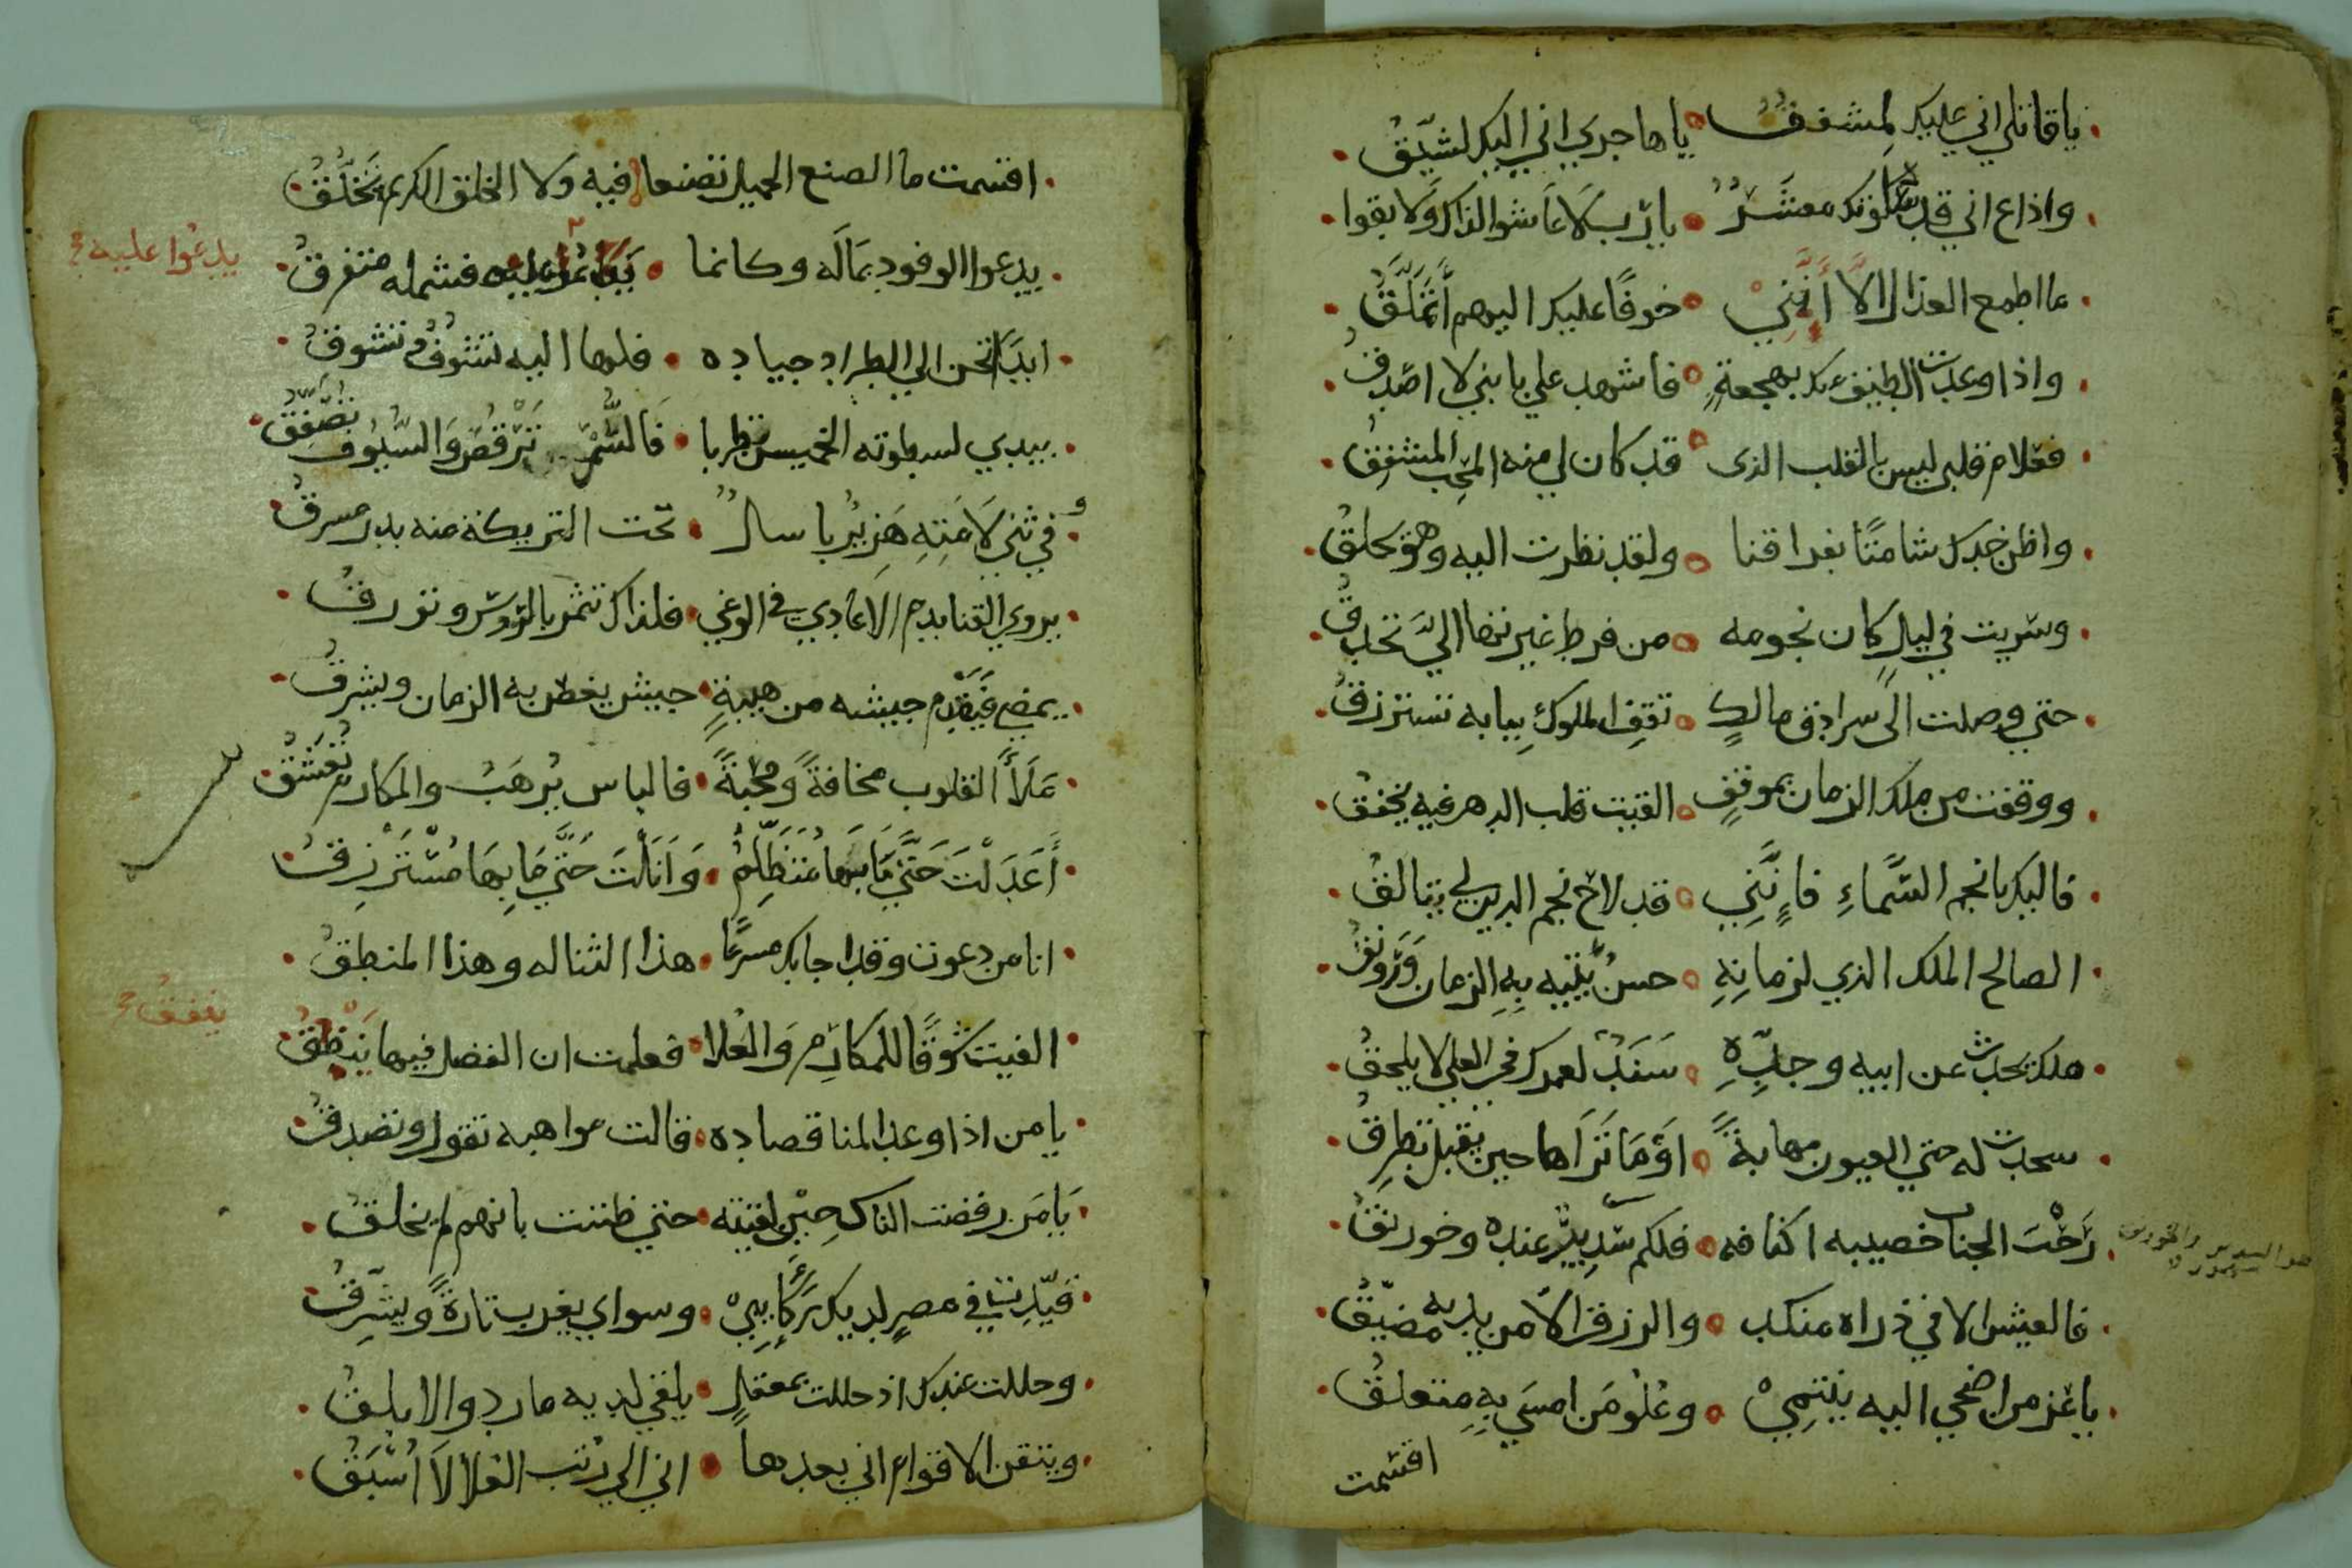 يا قاتلي اني عليك لمشفق يا هاجري اني اليك لشيق
واذاع اني قد سلوتك معشر يا رب لا عاشوا لذاك ولا بقوا
ما اطمع العذال الا أنني خوفا عليك اليهم أتملق
واذا وعدت الطيف منك بهجعة فاشهد علي بانني لا اصدق
فعلام قلبي ليس بالقلب الذي قد كان لي منه المحب المشفق
واظن خدك شامتا بفراقنا ولقد نظرت اليه وهو مخلق
وسريت في ليل كان نجومه من فرط غيرتها الي تحدق
حتي وصلت الى سرادق مالك تقف الملوك ببابه تسترزق
ووقفت من ملك الزمان بموقف القيت قلب الدهر فيه يخفق
فاليك يا نجم السماء فإنني قد لاح نجم الدين لي يتالق
الصالح الملك الذي لزمانه حسن يتيه به الزمان ورونق
ملك يحدث عن ابيه وجده سند لعمرك في العلي لا يلحق
سجدت له حتي العيون مهابة اوما تراها حين يقبل تطرق
رحب الجناب خصيبه اكنافه فلكم سدير عنده وخورنق
فالعيش الا في ذراه منكد والرزق الا من يديه مضيق
يا عز من اضحي اليه ينتمي وعلو من امسي به متعلق
اقسمت
اقسمت ما الصنع الجميل تصنعا فيه ولا الخلق الكريم تخلق
يدعوا الوفود بماله وكانما يدعوا عليه فشمله متفرق
يدعوا عليه
ابدا تحن الي الطراد جياده فلها اليه تشوف وتشوق
يبدي لسطوته الخميس تطربا فالسمر ترقص والسيوف تصفق
في ثني لامته هزبر باسل تحت التريكة منه بدر مسرق
يروي القنا بدم الاعادي في الوغي فلذاك تثمر بالرؤوس وتورق
يمضي فيقدم جيشه من هيبة جيش يغص به الزمان ويشرق
ملأ القلوب مخافة ومحبة فالباس يرهب والمكارم تعشق
أعدلت حتي ما بها متظلم وانلت حتي ما بها مسترزق
انا من دعوت وقد اجابك مسرعا هذا الثنا له وهذا المنطق
الفيت سوقا للمكارم والعلا فعلمت ان الفضل فيها ينفق
ينفق
يا من اذا وعد المنا قصاده قالت مواهبه تقول وتصدق
يا من رفضت الناس حين لقيته حتي ظننت بانهم لم يخلق
قيدت في مصر لديك ركايبي وسواي يغرب تارة ويشرق
وحللت عندك اذ حللت بمعقل يلقي لديه مارد والابلق
وتيقن الاقوام اني بعدها اني الي رتب العلا لا اسبق